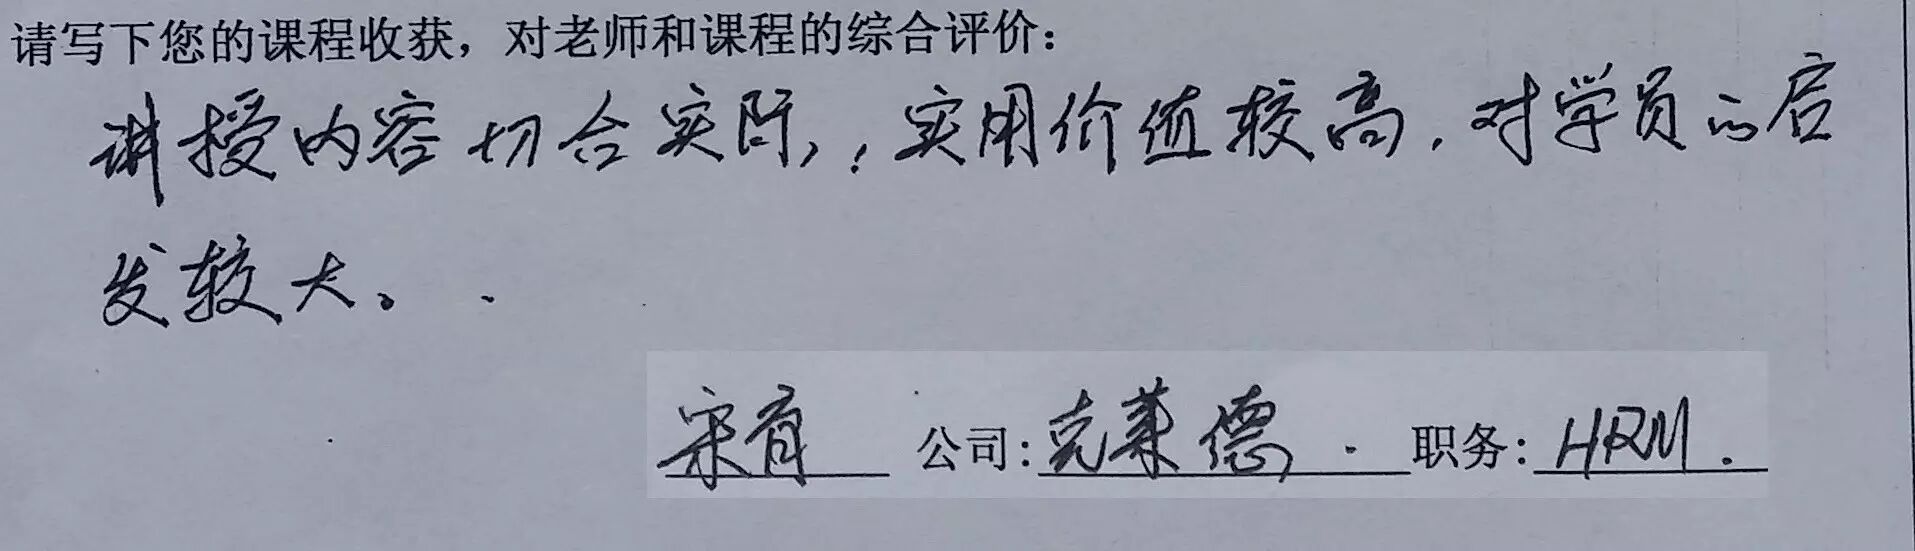 请写下您的课程收获，对老师和课程的综合评价：
讲授内容切合实际，，实用价值较高，对学员的启
发较大。
宋育 公司：克莱德 职务：HRM.